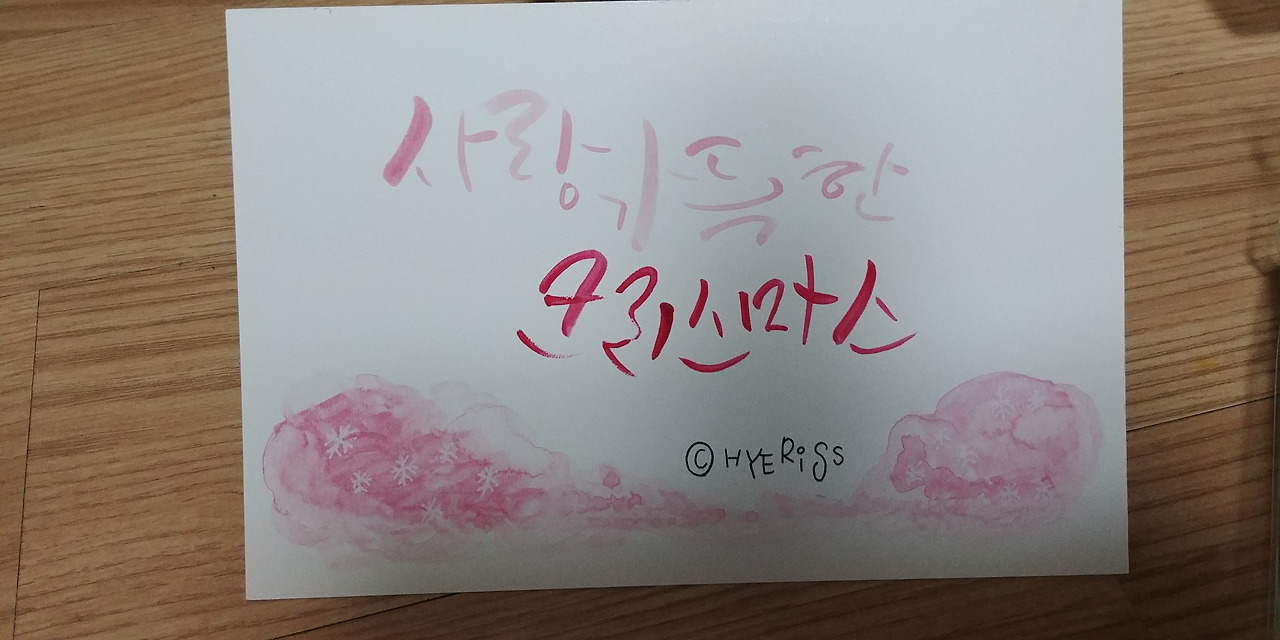 사랑가득한
크리스마스
© HYERigs